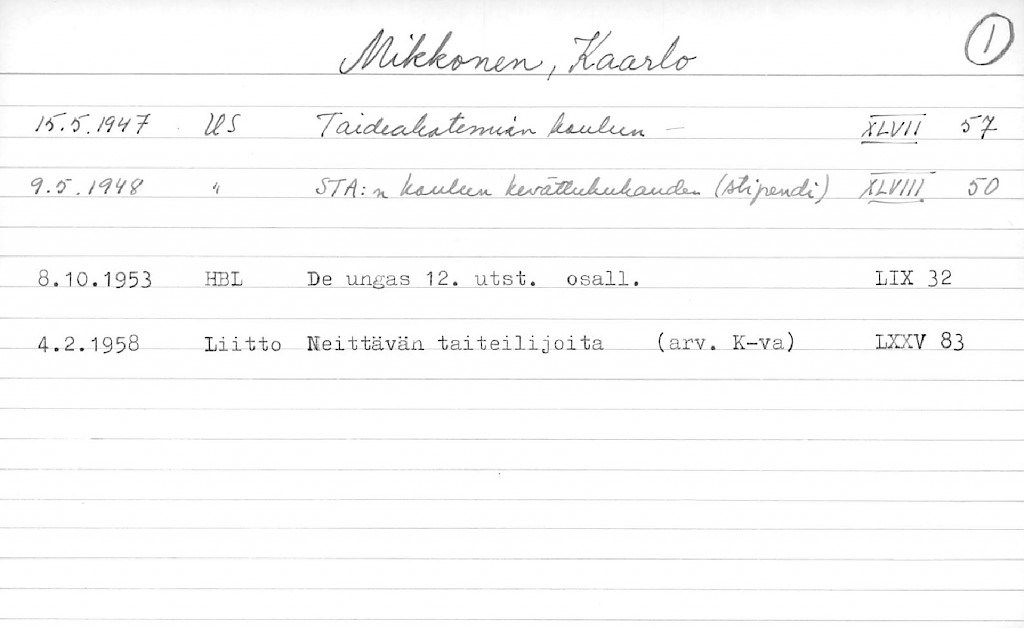 Mikkonen, Kaarlo 1
15.5.1947 US Taideakatemian koulun — XLVII 57
9.5.1948 " STA:n koulun kevätlukukauden (stipendi) XLVIII 50
8.10.1953 HBL De ungas 12. utst. osall. LIX 32
4.2.1958 Liitto Neittävän taiteilijoita (arv. K-va) LXXV 83